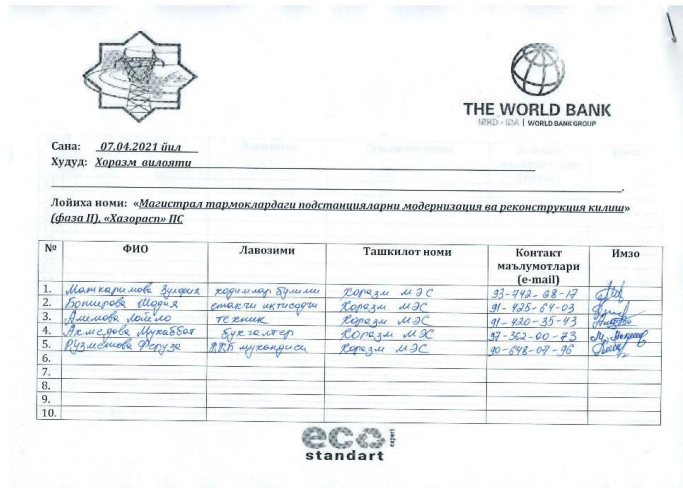 THE WORLD BANK
IBRD • IDA | WORLD BANK GROUP
Сана: 07.04.2021 йил
Худуд: Хоразм вилояти
Лойиха номи: «Магистрал тармоклардаги подстанцияларни модернизация ва реконструкция килиш»
(фаза II), «Хазорасп» ПС
№ ФИО Лавозими Ташкилот номи Контакт маълумотлари (e-mail) Имзо
1. Маткаримова Зулфия ходимлар булими Хоразм МЭС 93-742-68-17
2. Боширова Шодия етакчи иқтисодчи Хоразм МЭС 91-425-64-03
3. Алимова Лайло техник Хоразм МЭС 91-420-35-43
4. Ахмедова Мухаббат бухгалтер Хоразм МЭС 97-362-00-73
5. Рузметова Феруза ПТБ мухандиси Хоразм МЭС 90-648-07-96
6.
7.
8.
9.
10.
eco expert
standart